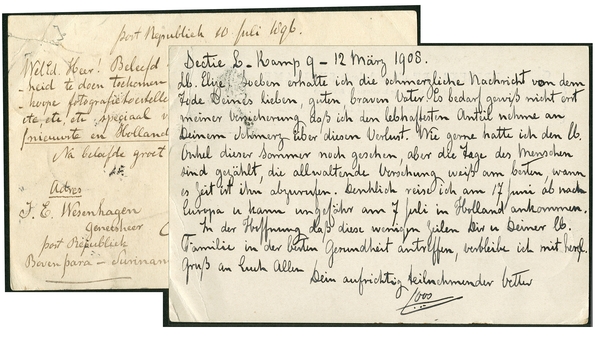 post Republiek 10 Juli 1896.
WelEd. Heer! Beleefd
heid te doen toekomen
koope fotografietoestelle
etc etc, etc, speciaal v
pnieuwste en Holland
Na beleefde groet
Adres
J. E. Wesenhagen
Geneesheer
post Republiek
Boven para - Suriname
Sectie L - Kamp 9 - 12 März 1908.
Lb. Elize, Soeben erhalte ich die schmerzliche Nachricht von dem
Tode Deines lieben, guten, braven Vater. Es bedarf gewiß nicht erst
meiner Versicherung daß ich den lebhaftesten Anteil nehme an
Deinem Schmerz über diesen Verlust. Wie gerne hätte ich den lb.
Onkel dieser Sommer noch gesehen, aber die Tage des Menschen
sind gezählt, die allwaltende Versehung weiß am besten, wann
es Zeit ist ihn abzurufen. Denklich reise ich am 17 Juni ab nach
Europa u kann ungefähr am 7 Juli in Holland ankommen.
In der Hoffnung daß diese wenigen Zeilen Dir u Deiner lb.
Familie in der besten Gesundheit antreffen, verbleibe ich mit herzl.
Gruß an Euch Allen
Dein aufrichtig teilnehmender Vetter
Coos